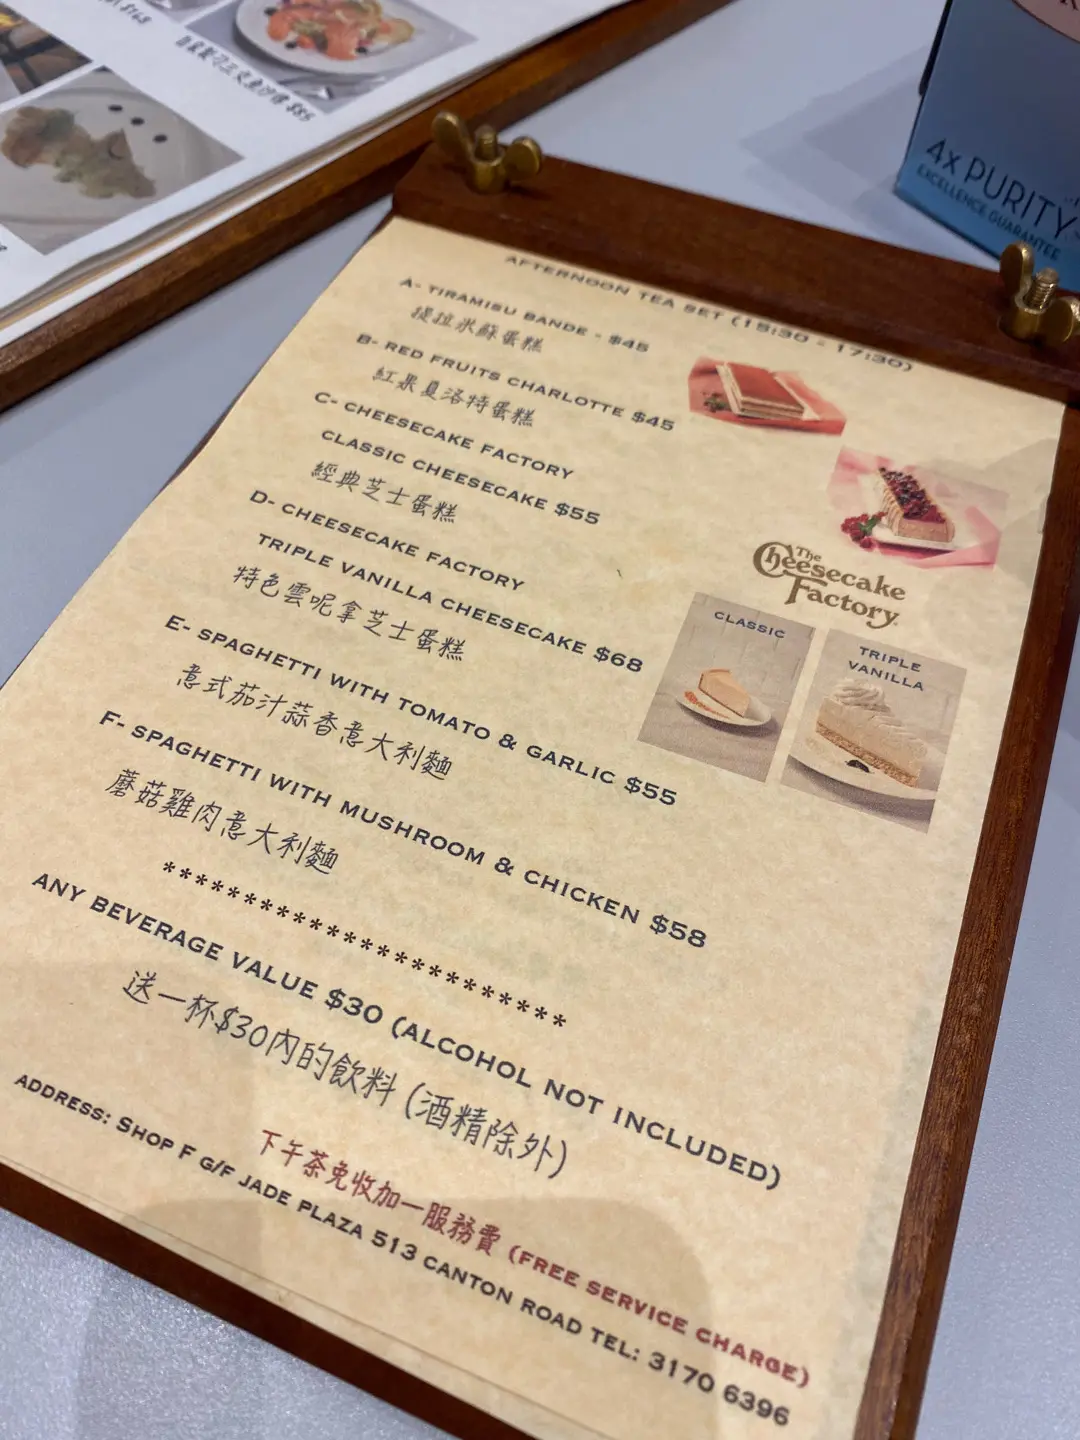 $85
4X PURITY
EXCELLENCE GUARANTEE
AFTERNOON TEA SET (15:30 - 17:30)
A- TIRAMISU BANDE - $45
提拉米蘇蛋糕
B- RED FRUITS CHARLOTTE $45
紅果夏洛特蛋糕
C- CHEESECAKE FACTORY
CLASSIC CHEESECAKE $55
經典芝士蛋糕
D- CHEESECAKE FACTORY
TRIPLE VANILLA CHEESECAKE $68
特色雲呢拿芝士蛋糕
The
Cheesecake
Factory
CLASSIC
TRIPLE
VANILLA
E- SPAGHETTI WITH TOMATO & GARLIC $55
意式茄汁蒜香意大利麵
F- SPAGHETTI WITH MUSHROOM & CHICKEN $58
蘑菇雞肉意大利麵
*************************
ANY BEVERAGE VALUE $30 (ALCOHOL NOT INCLUDED)
送一杯$30內的飲料 (酒精除外)
下午茶免收加一服務費 (FREE SERVICE CHARGE)
ADDRESS: SHOP F G/F JADE PLAZA 513 CANTON ROAD TEL: 3170 6396